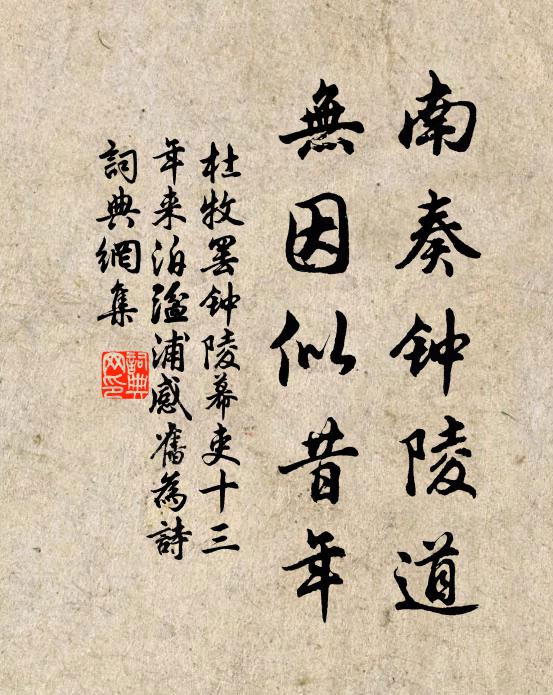 南奏钟陵道
無因似昔年
杜牧罢钟陵幕吏十三
年来泊湓浦感舊為詩
詞典網集
詞典
网印